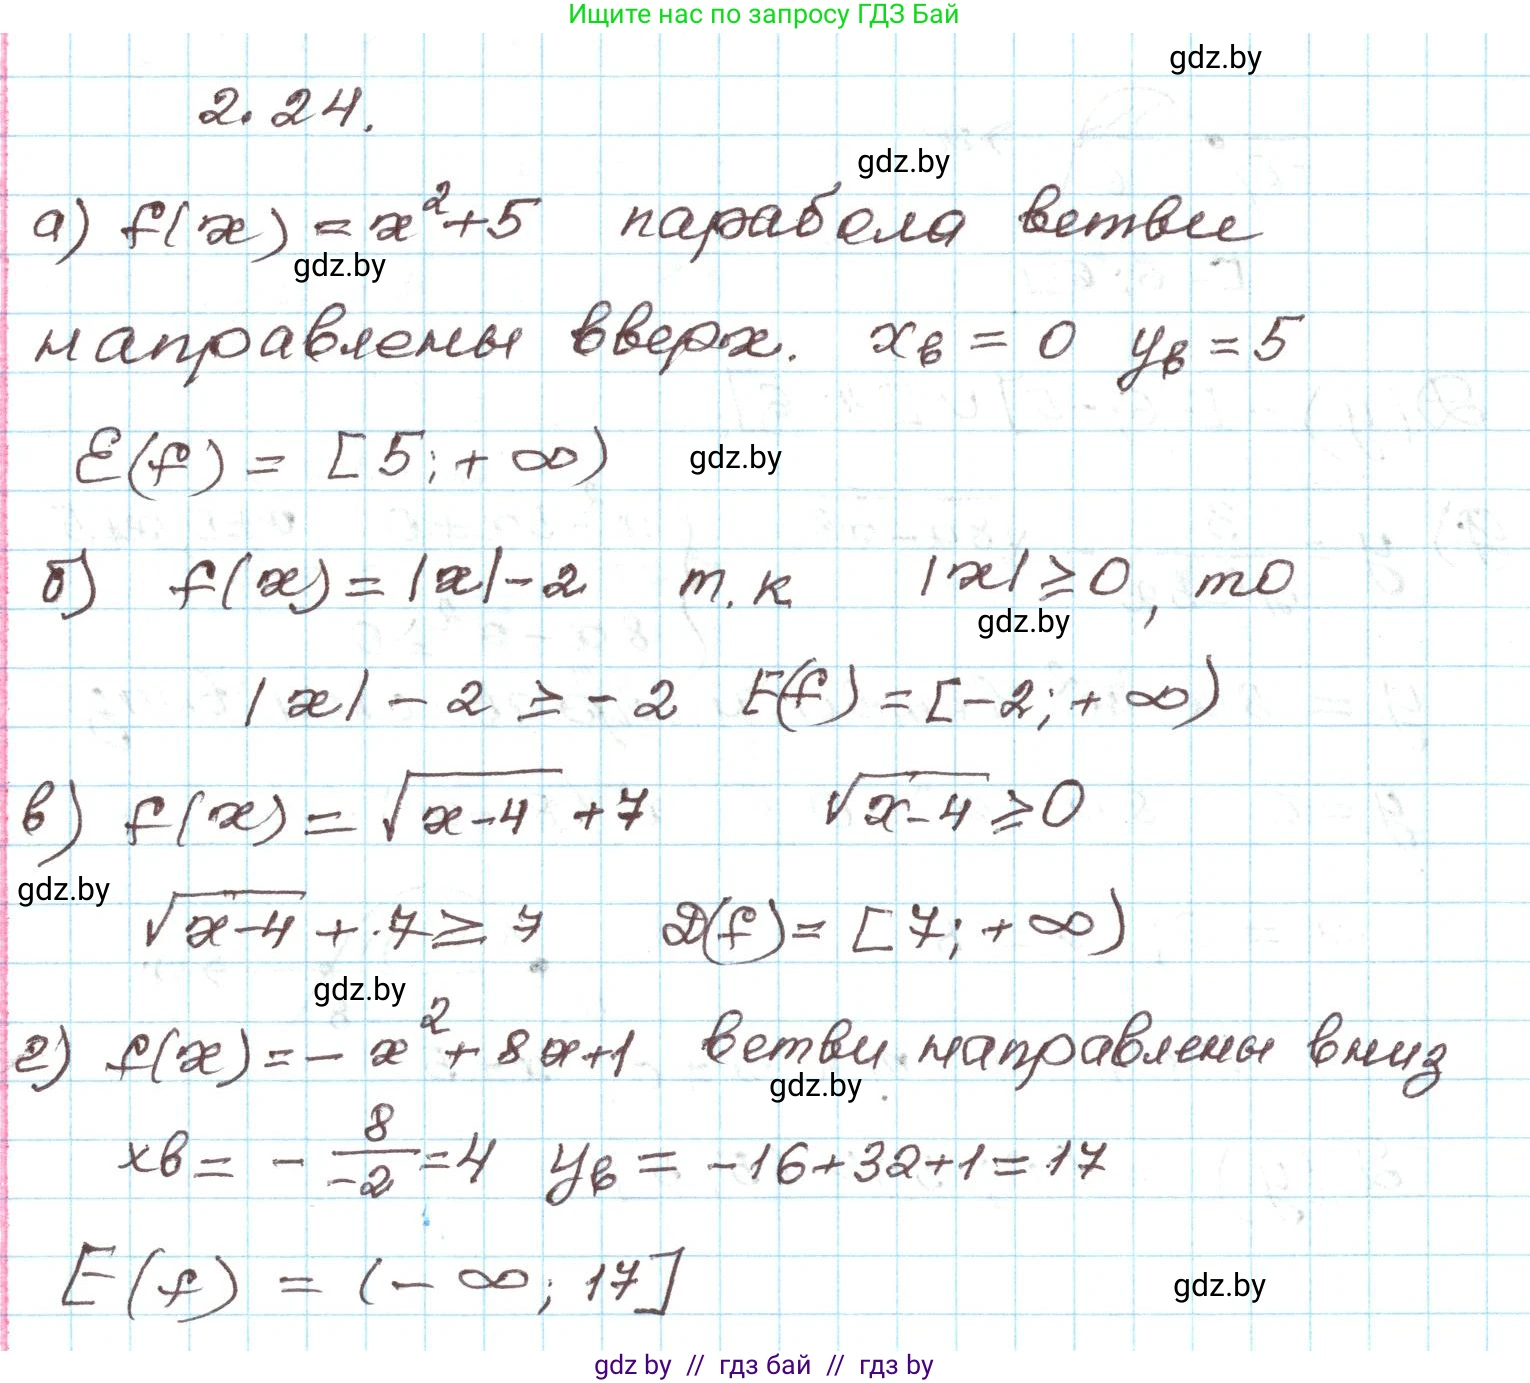 Ищите нас по запросу ГДЗ Бай
gdz.by
2.24.
gdz.by
а) f(x) = x² + 5 парабола ветви
gdz.by
направлены вверх. xв = 0 yв = 5
E(f) = [5; + ∞) gdz.by
б) f(x) = |x| - 2 т.к |x| ≥ 0, то
gdz.by
|x| - 2 ≥ - 2 E(f) = [-2; + ∞)
в) f(x) = √(x-4) + 7 √(x-4) ≥ 0
gdz.by
√(x-4) + 7 ≥ 7 D(f) = [7; + ∞)
gdz.by
г) f(x) = - x² + 8x + 1 ветви направлены вниз
gdz.by
xв = - 8/-2 = 4 yв = -16 + 32 + 1 = 17
E(f) = (- ∞; 17]
gdz.by
gdz by // гдз бай // гдз by